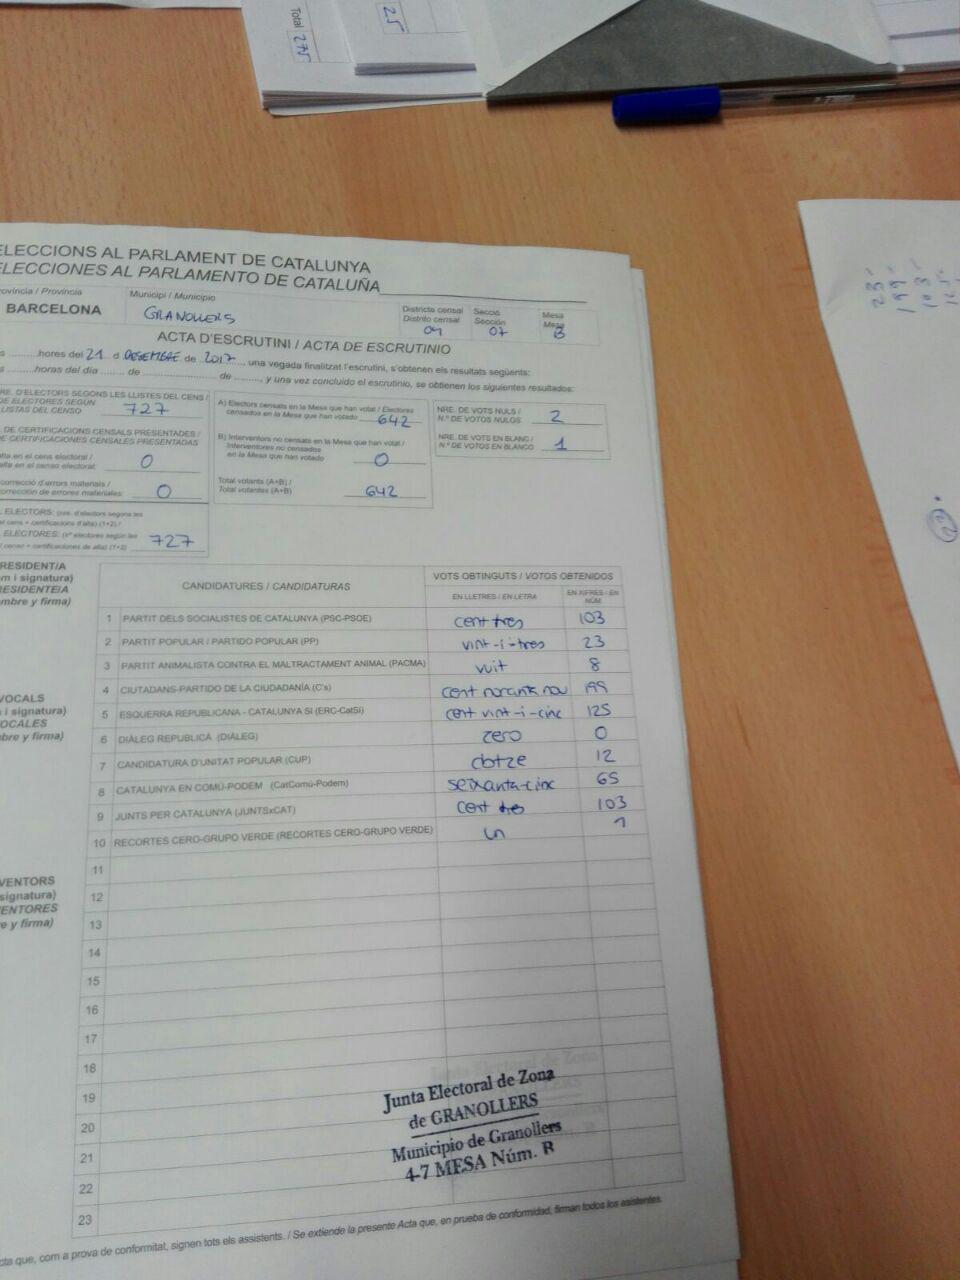 Total 275
25
ELECCIONS AL PARLAMENT DE CATALUNYA
ELECCIONES AL PARLAMENTO DE CATALUÑA
Província / Provincia
BARCELONA
Municipi / Municipio
GRANOLLERS
Districte censal
Distrito censal
04
Secció
Sección
07
Mesa
Mesa
B
ACTA D'ESCRUTINI / ACTA DE ESCRUTINIO
hores del 21 d DESEMBRE de 2017, una vegada finalitzat l'escrutini, s'obtenen els resultats següents:
horas del día de de , y una vez concluido el escrutinio, se obtienen los siguientes resultados:
NRE. D'ELECTORS SEGONS LES LLISTES DEL CENS /
DE ELECTORES SEGÚN
LISTAS DEL CENSO 727
DE CERTIFICACIONS CENSALS PRESENTADES /
DE CERTIFICACIONES CENSALES PRESENTADAS
alta en el cens electoral /
alta en el censo electoral: 0
correcció d'errors materials /
corrección de errores materiales: 0
ELECTORS: (nre. d'electors segons les
el cens + certificacions d'alta) (1+2) /
ELECTORES: (nº electores según les
censo + certificaciones de alta) (1+2) 727
A) Electors censats en la Mesa que han votat / Electores
censados en la Mesa que han votado 642
B) Interventors no censats en la Mesa que han votat /
Interventores no censados
en la Mesa que han votado 0
Total votants (A+B) /
Total votantes (A+B) 642
NRE. DE VOTS NULS /
N.º DE VOTOS NULOS 2
NRE. DE VOTS EN BLANC /
N.º DE VOTOS EN BLANCO 1
PRESIDENT/A
(nom i signatura)
PRESIDENTE/A
(nombre y firma)
VOCALS
(nom i signatura)
VOCALES
(nombre y firma)
INTERVENTORS
signatura)
INTERVENTORES
(nombre y firma)
CANDIDATURES / CANDIDATURAS
VOTS OBTINGUTS / VOTOS OBTENIDOS
EN LLETRES / EN LETRA
EN XIFRES / EN NÚM.
1 PARTIT DELS SOCIALISTES DE CATALUNYA (PSC-PSOE) cent tres 103
2 PARTIT POPULAR / PARTIDO POPULAR (PP) vint-i-tres 23
3 PARTIT ANIMALISTA CONTRA EL MALTRACTAMENT ANIMAL (PACMA) vuit 8
4 CIUTADANS-PARTIDO DE LA CIUDADANÍA (C's) cent noranta nou 199
5 ESQUERRA REPUBLICANA - CATALUNYA SÍ (ERC-CatSí) cent vint-i-cinc 125
6 DIÀLEG REPUBLICÀ (DIÀLEG) zero 0
7 CANDIDATURA D'UNITAT POPULAR (CUP) dotze 12
8 CATALUNYA EN COMÚ-PODEM (CatComú-Podem) seixanta-cinc 65
9 JUNTS PER CATALUNYA (JUNTSxCAT) cent tres 103
10 RECORTES CERO-GRUPO VERDE (RECORTES CERO-GRUPO VERDE) un 1
11
12
13
14
15
16
17
18
19
20
21
22
23
Junta Electoral de Zona
de GRANOLLERS
Municipio de Granollers
4-7 MESA Núm. B
acta que, com a prova de conformitat, signen tots els assistents. / Se extiende la presente Acta que, en prueba de conformidad, firman todos los asistentes.
23
199
103